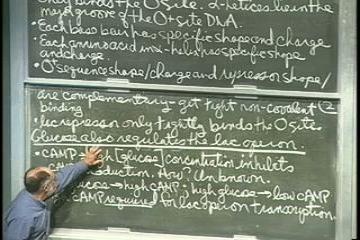 only binds the O site. α-helices lie in the
major groove of the O+ site DNA.
• Each base pair has specific shape and charge
• Each amino acid in α-helix has specific shape
and charge.
• O+ sequence shape/charge and repressor shape/
are complementary - get tight non-covalent
binding
• lac repressor only tightly binds the O site
Glucose also regulates the lac operon.
• cAMP glucose/concentration inhibits
production. How? Unknown.
glucose → high cAMP; high glucose → low cAMP
cAMP required for lac operon transcription.